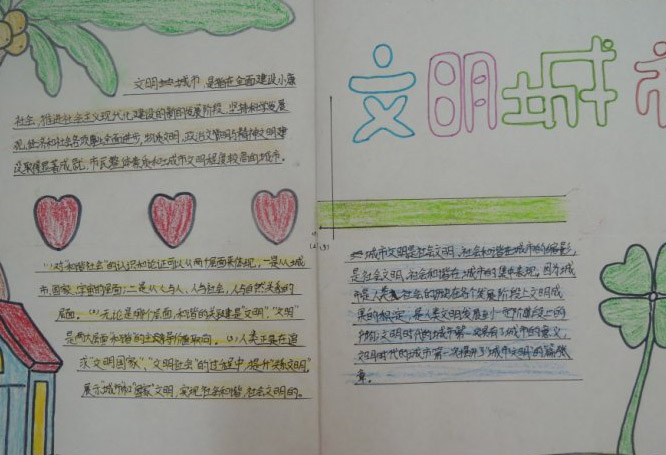 文明城市
文明城市，是指在全面建设小康
社会，推进社会主义现代化建设的新的发展阶段，坚持科学发展
观，经济和社会各项事业全面进步，物质文明，政治文明与精神文明建
设取得显著成就，市民整体素质和城市文明程度较高的城市。
对"和谐社会"的认识和论证可以从两个层面来体现，一是从城
市、国家、宇宙的层面；二是从人与人、人与社会、人与自然关系的
层面。(2)无论是哪个层面，和谐的关键是"文明"，"文明"
是两大层面和谐的主导价值取向。(3)人类正是在追
求"文明国家"，"文明社会"的过程中，提升
展示"城市"和"国家"文明，实现社会和谐，社会文明的。
城市文明是社会文明、社会和谐在城市的缩影，
是社会文明、社会和谐在城市的集中表现。因为城
市是人类社会的历史在各个发展阶段上文明成
果的标定，是人类文明发展到一定阶段上的
文明时代的城市第一次具有了城市的意义，
文明时代的城市第一次揭开了"城市文明"的篇
章。